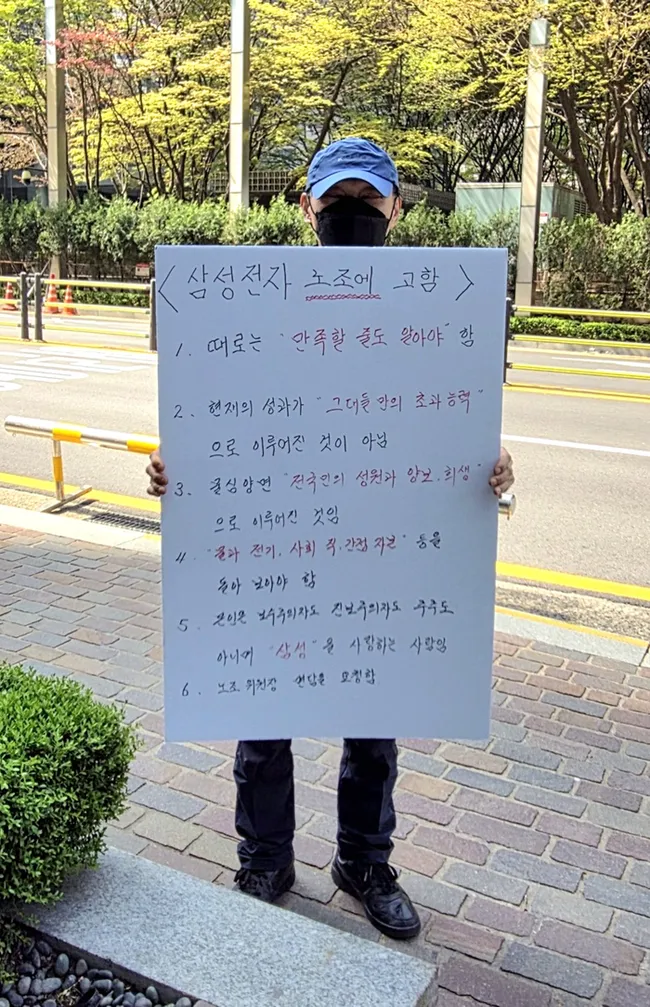 <삼성전자 노조에 고함>
1. 때로는 "만족할 줄도 알아야" 함
2. 현재의 성과가 "그대들만의 초과 능력"
으로 이루어진 것이 아님
3. 공심양면 "전국민의 성원과 양보.희생"
으로 이루어진 것임
4. "물과 전기, 사회 직.간접 자본" 등을
돌아 보아야 함
5. 본인은 보수주의자도 진보주의자도 주주도
아니며 "삼성"을 사랑하는 사람임
6. 노조 위원장 면담을 요청함